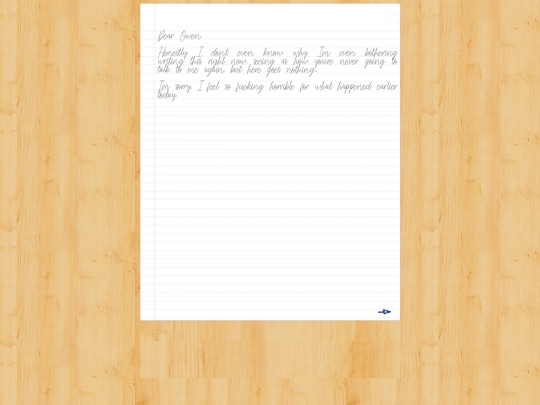 Dear Owen
Honestly I don't even know why I'm even bothering
writing this right now, seeing as how you're never going to
talk to me again, but here goes nothing.
I'm sorry. I feel so fucking horrible for what happened earlier
today.